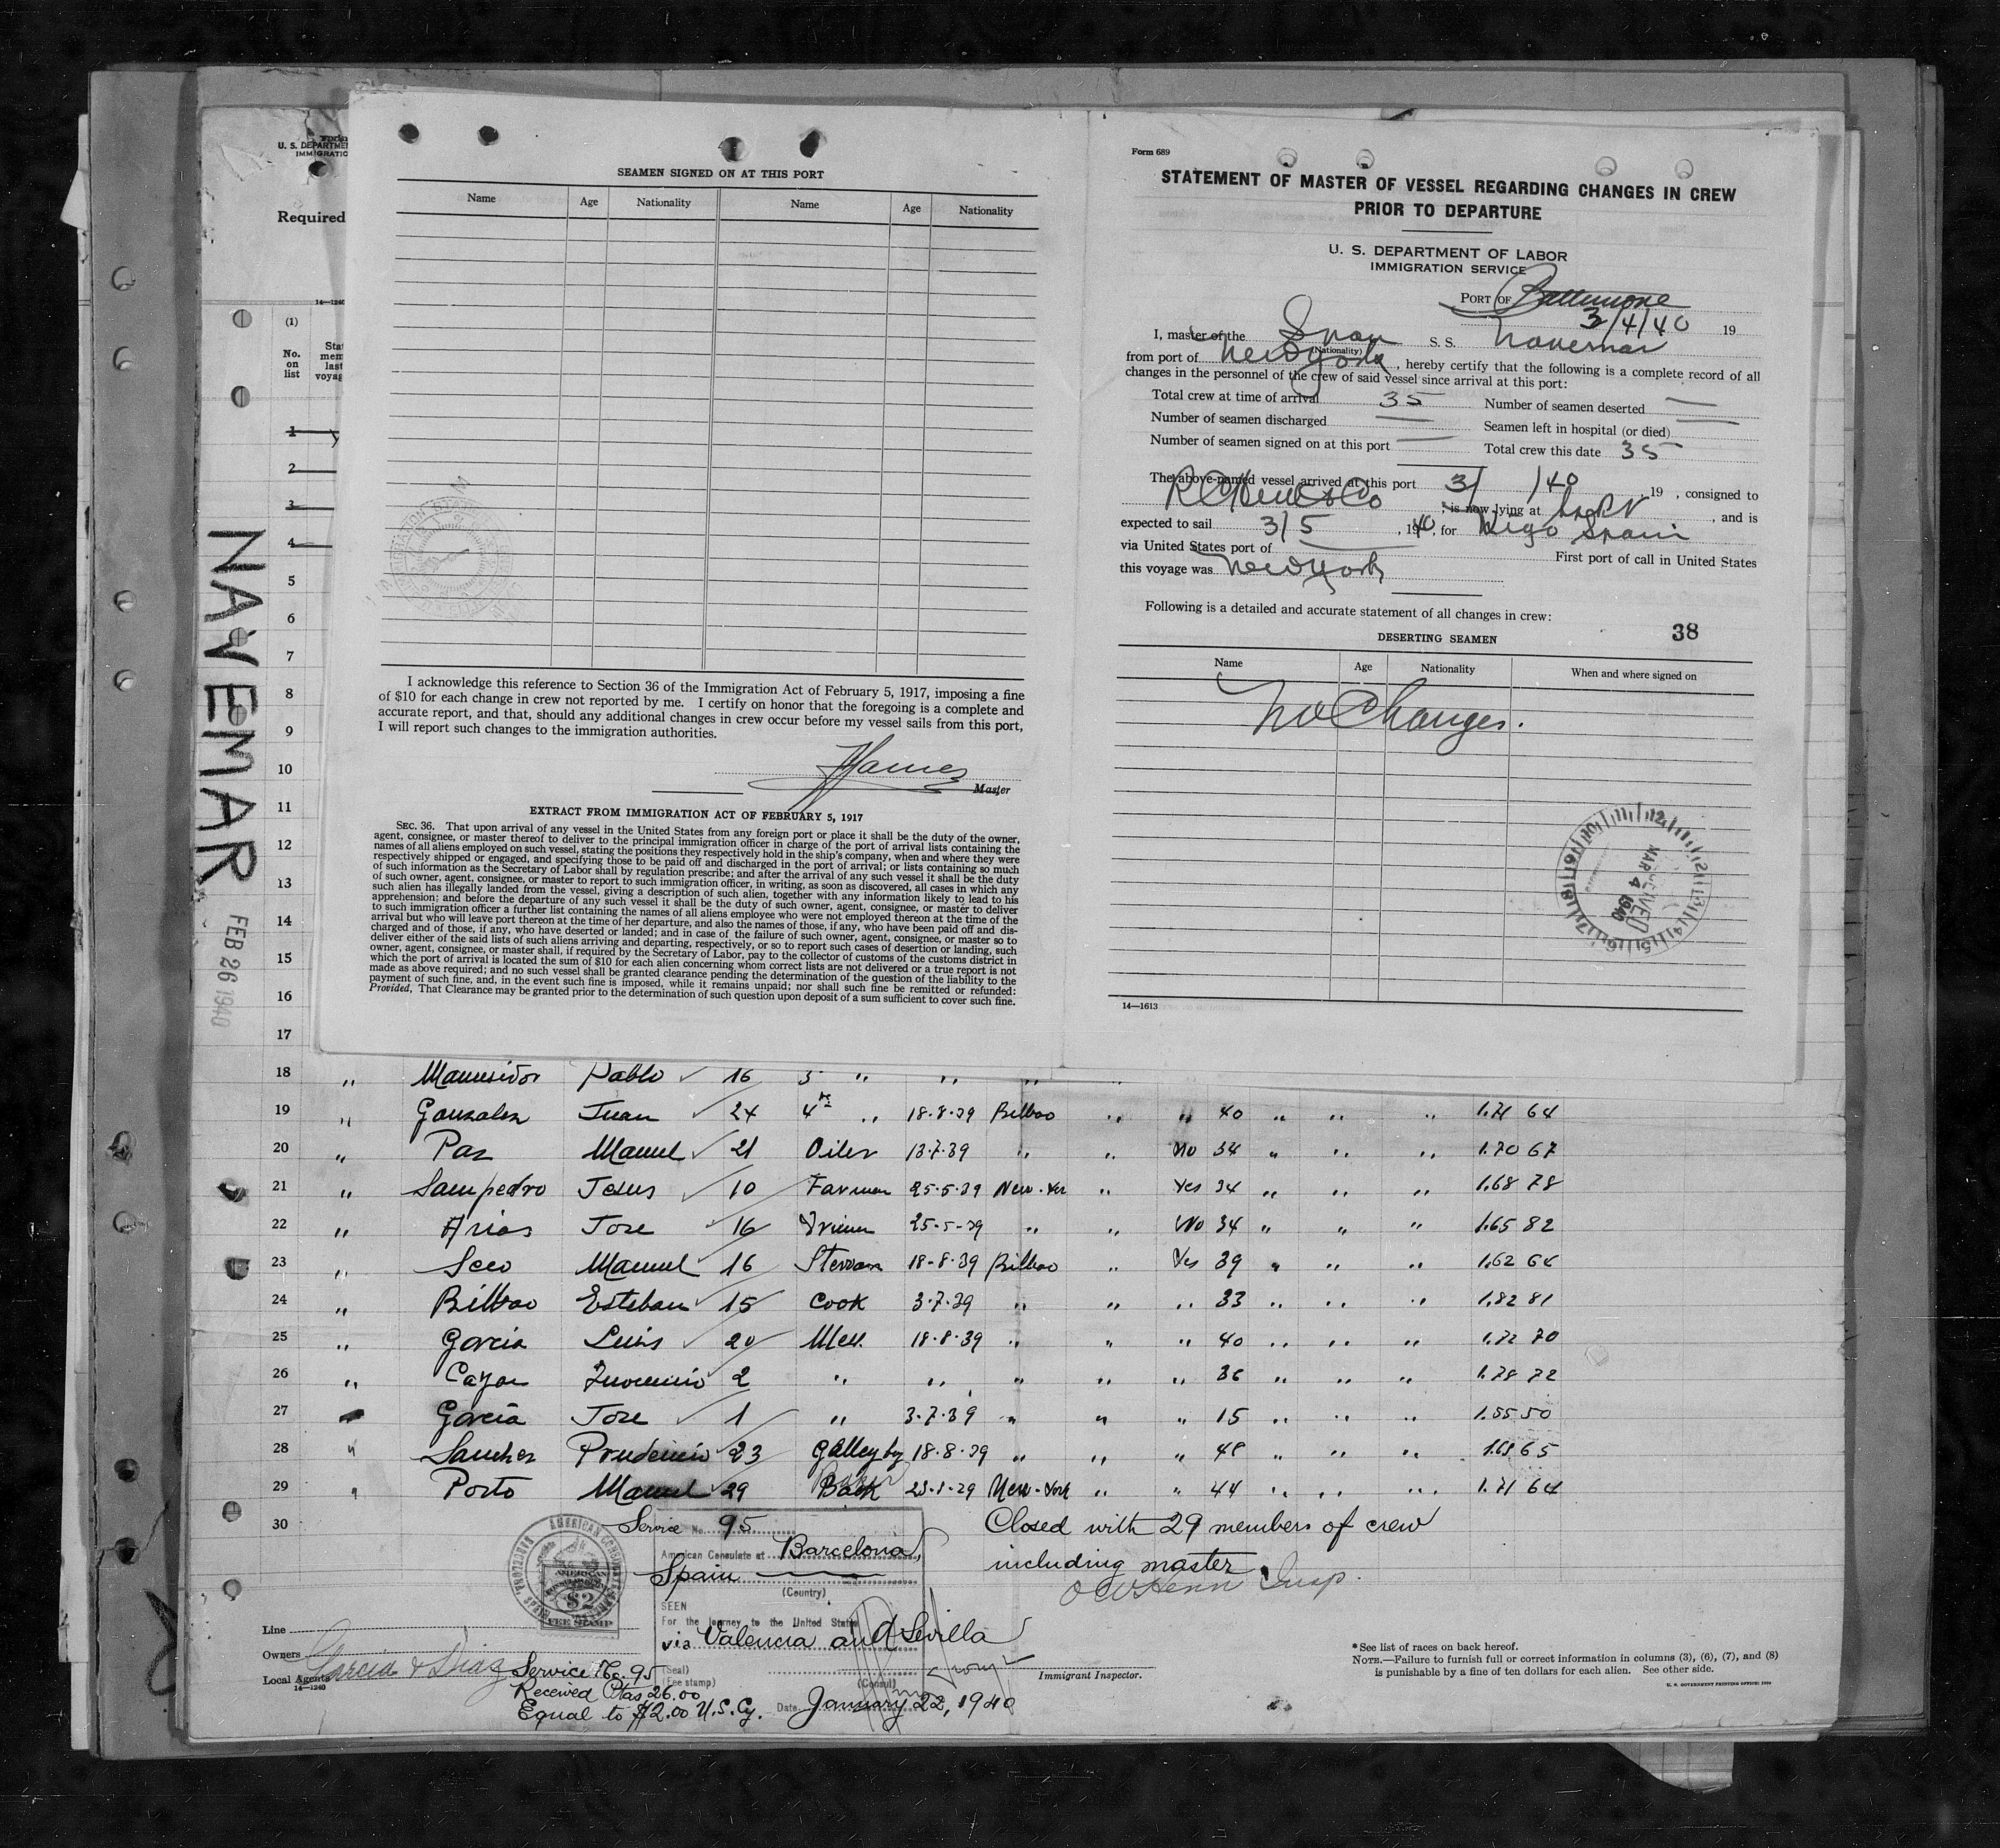 U. S. DEPARTME
IMMIGRATIC
Required
14—1240
(1)
No.
on
list
Stat
mem
last
voyag
1
2
3
4
5
6
7
8
9
10
11
12
13
14
15
16
17
NAVEMAR FEB 26 1940
SEAMEN SIGNED ON AT THIS PORT
Name Age Nationality Name Age Nationality
I acknowledge this reference to Section 36 of the Immigration Act of February 5, 1917, imposing a fine
of $10 for each change in crew not reported by me. I certify on honor that the foregoing is a complete and
accurate report, and that, should any additional changes in crew occur before my vessel sails from this port,
I will report such changes to the immigration authorities.
Master
EXTRACT FROM IMMIGRATION ACT OF FEBRUARY 5, 1917
SEC. 36. That upon arrival of any vessel in the United States from any foreign port or place it shall be the duty of the owner,
agent, consignee, or master thereof to deliver to the principal immigration officer in charge of the port of arrival lists containing the
names of all aliens employed on such vessel, stating the positions they respectively hold in the ship's company, when and where they were
respectively shipped or engaged, and specifying those to be paid off and discharged in the port of arrival; or lists containing so much
of such information as the Secretary of Labor shall by regulation prescribe; and after the arrival of any such vessel it shall be the duty
of such owner, agent, consignee, or master to report to such immigration officer, in writing, as soon as discovered, all cases in which any
such alien has illegally landed from the vessel, giving a description of such alien, together with any information likely to lead to his
apprehension; and before the departure of any such vessel it shall be the duty of such owner, agent, consignee, or master to deliver
to such immigration officer a further list containing the names of all aliens employee who were not employed thereon at the time of the
arrival but who will leave port thereon at the time of her departure, and also the names of those, if any, who have been paid off and dis-
charged and of those, if any, who have deserted or landed; and in case of the failure of such owner, agent, consignee, or master so to
deliver either of the said lists of such aliens arriving and departing, respectively, or so to report such cases of desertion or landing, such
owner, agent, consignee, or master shall, if required by the Secretary of Labor, pay to the collector of customs of the customs district in
which the port of arrival is located the sum of $10 for each alien concerning whom correct lists are not delivered or a true report is not
made as above required; and no such vessel shall be granted clearance pending the determination of the question of the liability to the
payment of such fine, and, in the event such fine is imposed, while it remains unpaid; nor shall such fine be remitted or refunded:
Provided, That Clearance may be granted prior to the determination of such question upon deposit of a sum sufficient to cover such fine.
Form 689
STATEMENT OF MASTER OF VESSEL REGARDING CHANGES IN CREW
PRIOR TO DEPARTURE
U. S. DEPARTMENT OF LABOR
IMMIGRATION SERVICE
PORT OF Baltimore
3/4/40 19
I, master of the Span S. S. Navemar
(Nationality)
from port of New York, hereby certify that the following is a complete record of all
changes in the personnel of the crew of said vessel since arrival at this port:
Total crew at time of arrival 35 Number of seamen deserted —
Number of seamen discharged — Seamen left in hospital (or died) —
Number of seamen signed on at this port — Total crew this date 35
The above-named vessel arrived at this port 3/ /40, 19 , consigned to
is now lying at , and is
expected to sail 3/5, 1940, for Vigo Spain
via United States port of — First port of call in United States
this voyage was New York
Following is a detailed and accurate statement of all changes in crew:
DESERTING SEAMEN 38
Name Age Nationality When and where signed on
No Changes.
RECEIVED MAR 4 1940
14—1613
18 " Pablo 16 3 " " "
19 " Gonzalez Juan 24 4th " 18-8-39 Bilbao " " 40 " " " 1.71 64
20 " Paz Manuel 21 Oiler 13-7-39 " " No 34 " " " 1.70 67
21 " Sampedro Jesus 10 25-5-39 New-Yor " Yes 34 " " " 1.68 78
22 " Arias Jose 16 25-5-39 " " No 34 " " " 1.65 82
23 " Seco Manuel 16 18-8-39 Bilbao " Yes 39 " " " 1.62 64
24 " Bilbao Esteban 15 Cook 3-7-39 " " " 33 " " " 1.82 81
25 " Garcia Luis 20 Mess. 18-8-39 " " " 40 " " " 1.72 70
26 " 2 " " " " " 36 " " " 1.78 72
27 Garcia Jose 1 " 3-7-39 " " " 15 " " " 1.55 50
28 " Sanchez Prudencio 23 Galley by 18-8-39 " " " 48 " " " 65
29 " Porto Manuel 29 New-York " " 44 " " " 1.71 64
30
Closed with 29 members of crew
including master.
Insp.
Service No. 95
American Consulate at Barcelona,
Spain
(Country)
SEEN
For the journey to the United States
via Valencia and Sevilla
(Seal)
(Fee stamp)
(Consul)
Date January 22, 1940
AMERICAN CONSULATE BARCELONA
$2
FEE STAMP
Line
Owners
Local Agents Garcia & Diaz
14—1240
Service No. 95
Received Ptas 26.00
Equal to $2.00 U.S.Cy.
Immigrant Inspector.
*See list of races on back hereof.
NOTE.—Failure to furnish full or correct information in columns (3), (6), (7), and (8)
is punishable by a fine of ten dollars for each alien. See other side.
U. S. GOVERNMENT PRINTING OFFICE